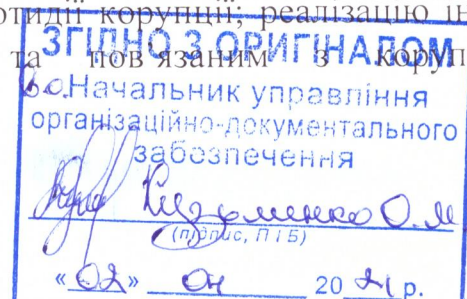 отидії корупції; реалізацію
та пов'язаним з коруп
ЗГІДНО З ОРИГІНАЛОМ
В.о. Начальник управління
організаційно-документального
забезпечення
О.М
(підпис, П І Б)
«02» 04 2021 р.